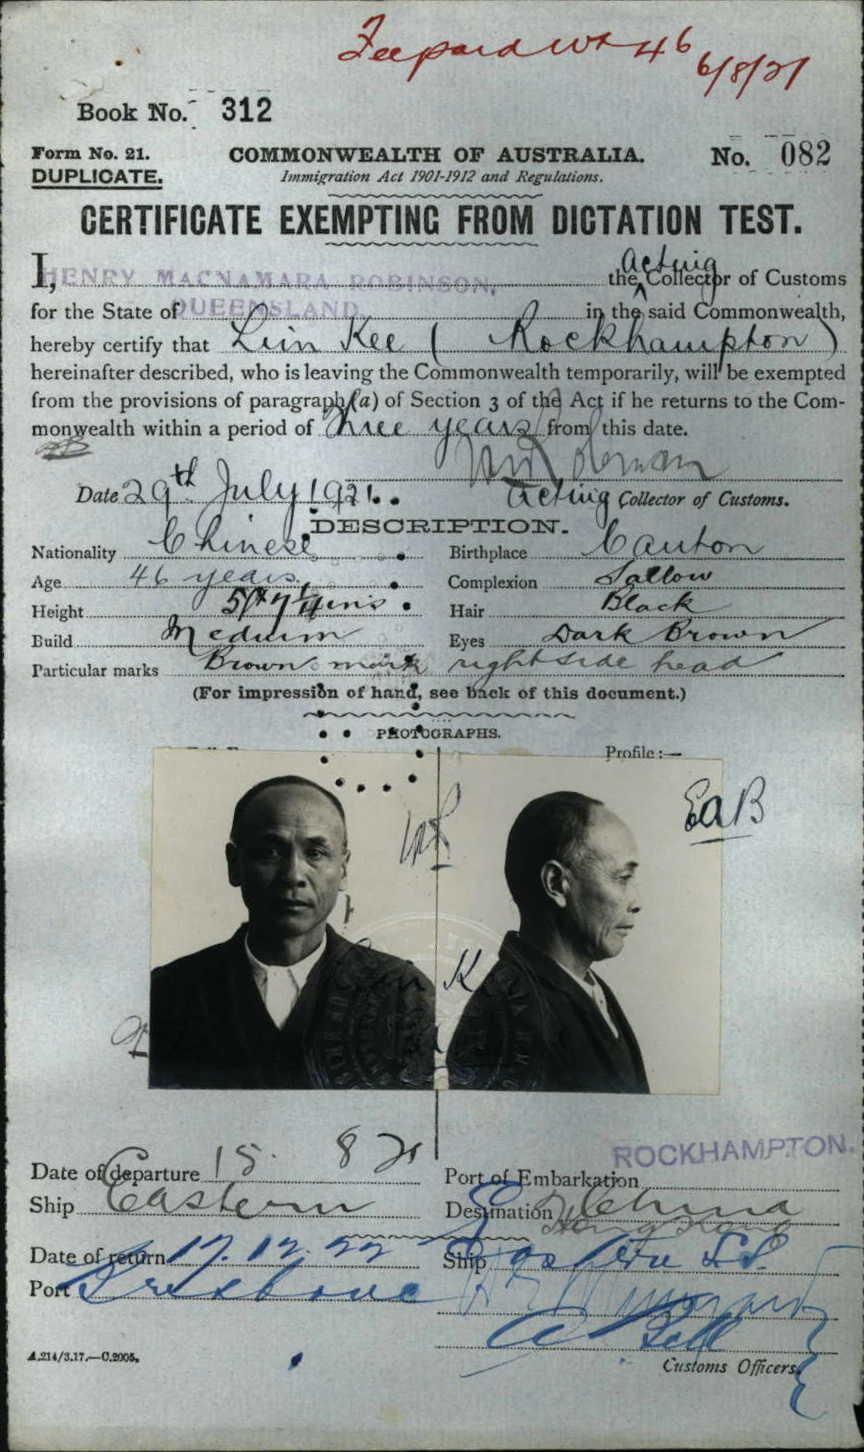 6/8/21
Book No. 312
Form No. 21. COMMONWEALTH OF AUSTRALIA. No. 082
DUPLICATE. Immigration Act 1901-1912 and Regulations.
CERTIFICATE EXEMPTING FROM DICTATION TEST.
I, HENRY MACNAMARA ROBINSON, the Acting Collector of Customs
for the State of QUEENSLAND. in the said Commonwealth,
hereby certify that Lim Kee ( Rockhampton )
hereinafter described, who is leaving the Commonwealth temporarily, will be exempted
from the provisions of paragraph (a) of Section 3 of the Act if he returns to the Com-
monwealth within a period of Three years from this date.
Date 29th July 1921. Acting Collector of Customs.
DESCRIPTION.
Nationality Chinese Birthplace Canton
Age 46 years Complexion Sallow
Height 5ft 7¼ins Hair Black
Build Medium Eyes Dark Brown
Particular marks Brown mark right side head
(For impression of hand, see back of this document.)
PHOTOGRAPHS.
Profile :—
EaB
Kee
ROCKHAMPTON.
Date of departure 15. 8 21 Port of Embarkation
Ship Eastern Destination China
Hong Kong
Date of return 17.12.22 Ship Eastern
Port Brisbane
Bell
A.214/3.17.—C.2005. Customs Officers.